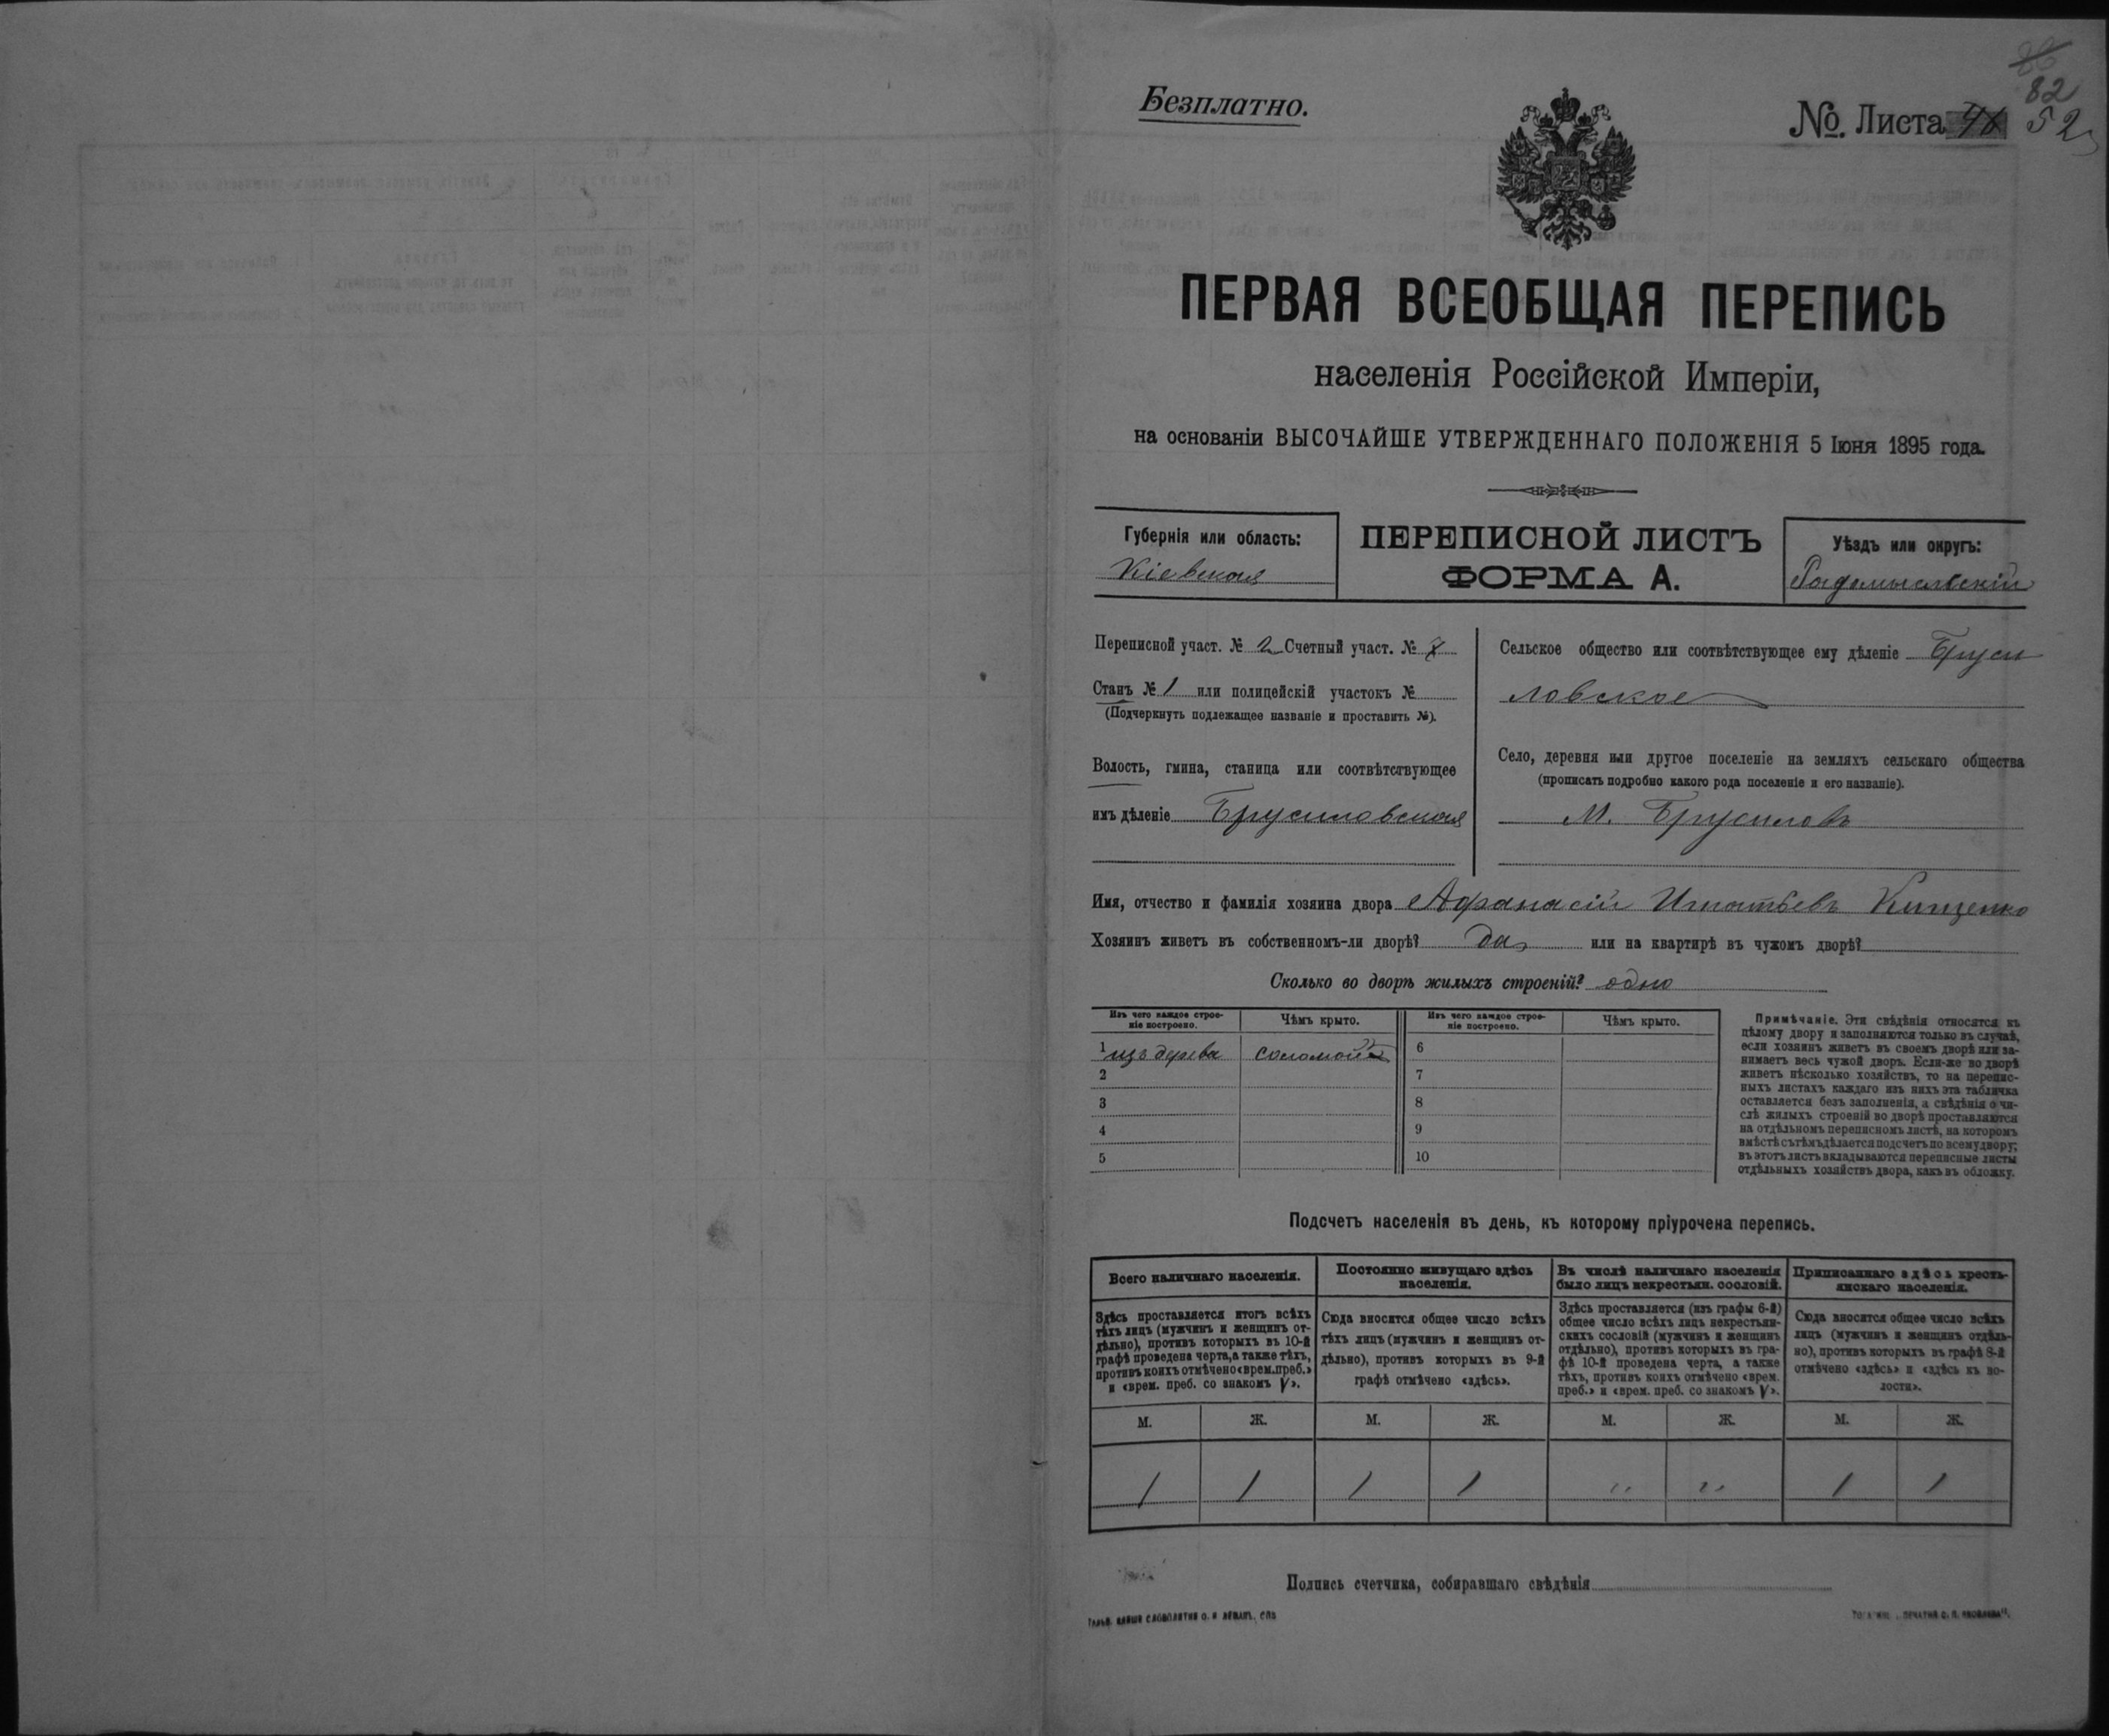 82
Безплатно.
№. Листа 52
ПЕРВАЯ ВСЕОБЩАЯ ПЕРЕПИСЬ
населенія Россійской Имперіи,
на основаніи ВЫСОЧАЙШЕ УТВЕРЖДЕННАГО ПОЛОЖЕНІЯ 5 Іюня 1895 года.
Губернія или область:
Кіевская
ПЕРЕПИСНОЙ ЛИСТЪ
ФОРМА А.
Уѣздъ или округъ:
Радомысльскій
Переписной участ. № 2 Счетный участ. №
Станъ № 1 или полицейскій участокъ №
(Подчеркнуть подлежащее названіе и проставить №).
Волость, гмина, станица или соотвѣтствующее
имъ дѣленіе Брусиловская
Сельское общество или соотвѣтствующее ему дѣленіе Бруси
ловское
Село, деревня или другое поселеніе на земляхъ сельскаго общества
(прописать подробно какого рода поселеніе и его названіе).
М. Брусиловъ
Имя, отчество и фамилія хозяина двора Афанасій Игнатьевъ Кищенко
Хозяинъ живетъ въ собственномъ-ли дворѣ? да или на квартирѣ въ чужомъ дворѣ?
Сколько во дворѣ жилыхъ строеній? одно
Изъ чего каждое строе-
ніе построено.
Чѣмъ крыто.
Изъ чего каждое строе-
ніе построено.
Чѣмъ крыто.
1 изъ дерева соломой 6
2 7
3 8
4 9
5 10
Примѣчаніе. Эти свѣдѣнія относятся къ
цѣлому двору и заполняются только въ случаѣ,
если хозяинъ живетъ въ своемъ дворѣ или за-
нимаетъ весь чужой дворъ. Если-же во дворѣ
живетъ нѣсколько хозяйствъ, то на перепис-
ныхъ листахъ каждаго изъ нихъ эта табличка
оставляется безъ заполненія, а свѣдѣнія о чи-
слѣ жилыхъ строеній во дворѣ проставляются
на отдѣльномъ переписномъ листѣ, на которомъ
вмѣстѣ съ тѣмъ дѣлается подсчетъ по всему двору;
въ этотъ листъ вкладываются переписные листы
отдѣльныхъ хозяйствъ двора, какъ въ обложку.
Подсчетъ населенія въ день, къ которому пріурочена перепись.
Всего наличнаго населенія.
Постоянно живущаго здѣсь
населенія.
Въ числѣ наличнаго населенія
было лицъ некрестьян. сословій.
Приписаннаго здѣсь кресть-
янскаго населенія.
Здѣсь проставляется итогъ всѣхъ
тѣхъ лицъ (мужчинъ и женщинъ от-
дѣльно), противъ которыхъ въ 10-й
графѣ проведена черта, а также тѣхъ,
противъ коихъ отмѣчено «врем. преб.»
и «врем. преб. со знакомъ V».
Сюда вносится общее число всѣхъ
тѣхъ лицъ (мужчинъ и женщинъ от-
дѣльно), противъ которыхъ въ 9-й
графѣ отмѣчено «здѣсь».
Здѣсь проставляется (изъ графы 6-й)
общее число всѣхъ лицъ некрестьян-
скихъ сословій (мужчинъ и женщинъ
отдѣльно), противъ которыхъ въ гра-
фѣ 10-й проведена черта, а также
тѣхъ, противъ коихъ отмѣчено «врем.
преб.» и «врем. преб. со знакомъ V».
Сюда вносится общее число всѣхъ
лицъ (мужчинъ и женщинъ отдѣль-
но), противъ которыхъ въ графѣ 8-й
отмѣчено «здѣсь» и «здѣсь къ во-
лости».
М. Ж. М. Ж. М. Ж. М. Ж.
1 1 1 1 " " 1 1
Подпись счетчика, собиравшаго свѣдѣнія